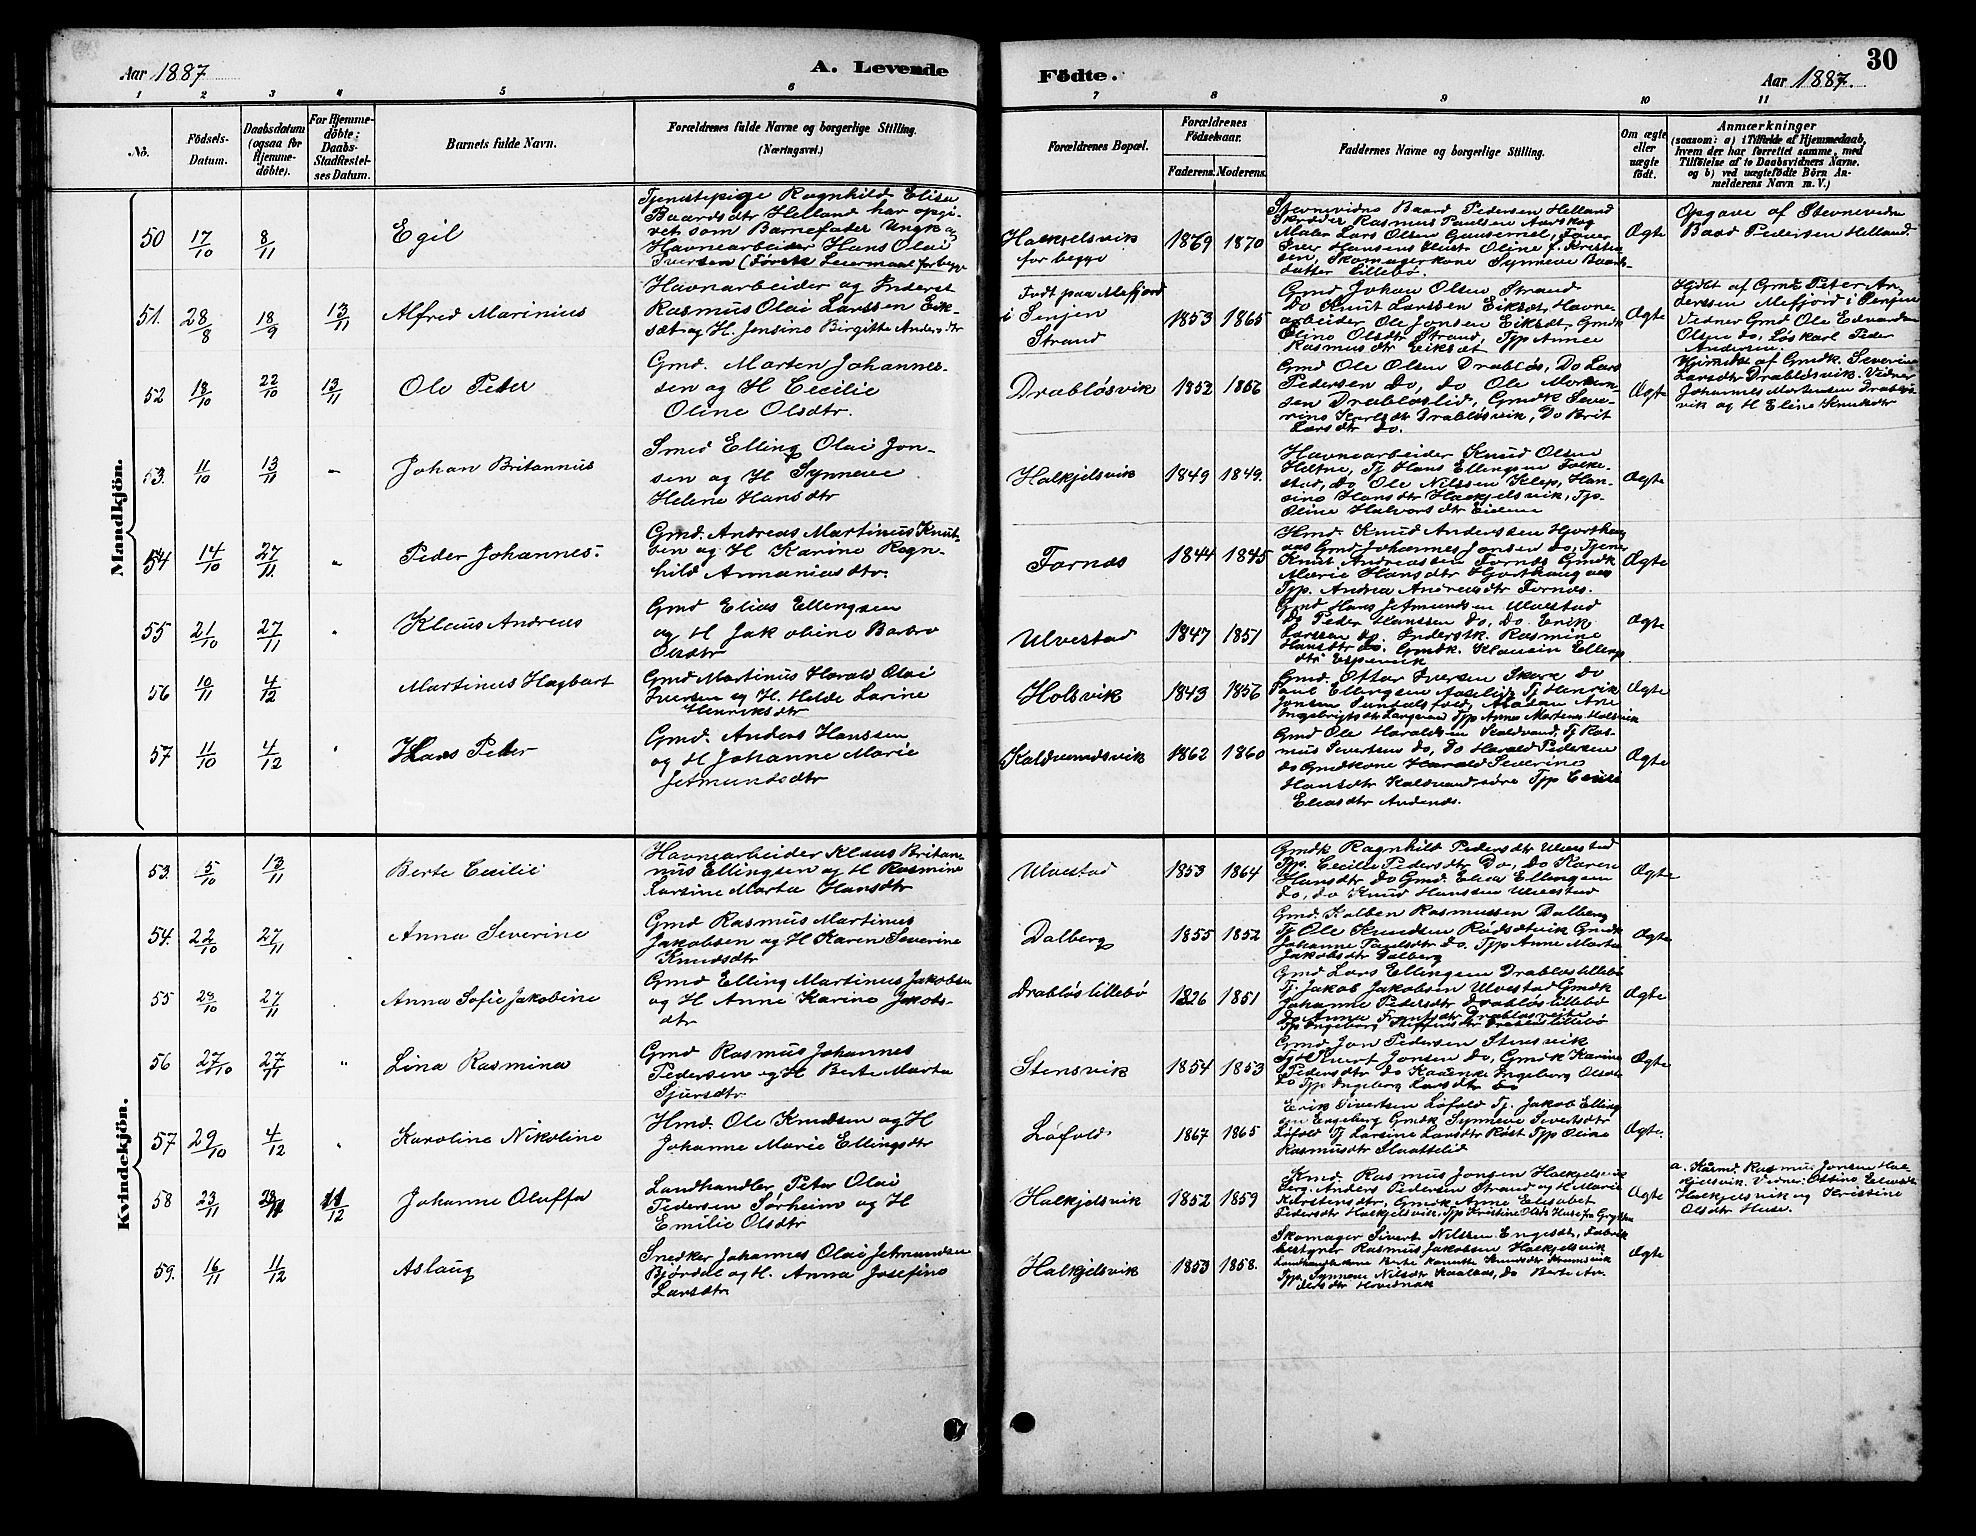 Aar 1887
A. Levende
Födte.
Aar 1887.
30
1 2 3 4 5 6 7 8 9 10 11
No.
Födsels-Datum.
Daabsdatum (ogsaa for Hjemmedöbte).
For Hjemmedöbte; Daabs-Stadfæstelses Datum.
Barnets fulde Navn.
Forældrenes fulde Navne og borgerlige Stilling.
(Næringsvei.)
Forældrenes Bopæl.
Forældrenes Födselsaar.
Faderens. Moderens.
Faddernes Navne og borgerlige Stilling.
Om ægte eller uægte födt.
Anmærkninger
(saasom: a) i Tilfælde af Hjemmedaab, hvem der har forrettet samme, med Tilföielse af to Daabsvidners Navne, og b) ved uægtefödte Börn Anmelderens Navn m. V.)
Mandkjön.
50 17/10 8/11
Egil
Tjenestepige Ragnhild Elisa
Baardsdtr Helland har opgi-
vet som Barnefader Ungk og
Havnearbeider Hans Olai
Iversen (Første Leiermaal for begge
Halkjelsvik
for begge
1869 1870
Stevnevidne Baard Pedersen Helland
Skrædder Rasmus Paulsen Aurskog
Maler Lars Olsen
Iver Hansens Hustr Oline f. Kristen
sen, Skomagerkone Synneve Baards-
datter Lillebö.
Ægte
Opgave af Stevnevidne
Baard Pedersen Helland.
51. 28/8 18/9 13/11
Alfred Marinius
Havnarbeider og Inderst
Rasmus Olai Larssen Eik-
sæt og H. Jensine Birgitte Andersdtr
Født paa Mefjord
i Senjen
Strand
1853 1865
Gmd Johan Olsen Strand
Do Knut Larssen Eiksæt, Havne-
arbeider Ole Jonsen Eiksæt, Gmdk
Oline Olsdtr Strand, Tpp Anne
Rasmusdtr Eiksæt
Ægte
Hjdbt af Gmd Peter An
derssen Mefjord i Senjen
Vidner Gmd Ole Edvardsen
Olsen do, Löskarl Peder
Andersen.
52 18/10 22/10 13/11
Ole Peter
Gmd. Morten Johannes-
sen og H Cecilie
Oline Olsdtr.
Drabløsvik
1852 1856
Gmd Ole Olsen Drabløs, Do Lars
Pedersen Do, do Ole Morten-
sen Drabløslid, Gmdk Seve-
rine Karlsdtr Drabløsvik, Do Brit
Larsdtr do.
Ægte
Hjemdøbt af Gmdk. Severine
Larsdtr Drabløsvik. Vidner
Johannes Mortensen Drabløs-
vik og H Eline Knutsdtr
53. 11/10 13/11 "
Johan Britannus
Smed Elling Olai Jon-
sen og H Synneve
Helene Hansdtr
Halkjelsvik
1849 1849.
Havnearbeider Knud Olsen
Hdtne, Tj Hans Ellingsen Folke-
stad, do Ole Nilssen Klep, Han-
sine Hansdtr Halkjelsvik, Tjp.
Oline Halvorsdtr Eidem
Ægte
54 14/10 27/11 "
Peder Johannes.
Gmd. Andreas Martinus Knut-
sen og H Karine Ragn-
hild Annaniasdtr.
Fornæs
1844 1845
Hmd. Knud Anderssen Hjorthaug
aas Gmd Johannes Jonsen do, Tjene
Knut Andreassen Fornæs Gmdk
Marie Hansdtr Hjorthaug aas
Tjp. Andrea Andreasdtr Fornæs.
Ægte
55 21/10 27/11 "
Klaus Andreas
Gmd Elias Ellingsen
og H Jakobine Barbro
Olsdtr
Ulvestad
1847 1851
Gmd Hans Jetmundsen Ulvestad
Do Peder Hanssen do, Do. Erik
Larssen do. Inderstk. Rasmine
Hansdtr do. Gmdk. Klausin Ellings
dtr Espevik
Ægte
56 10/11 4/12
Martinus Hagbart
Gmd Martinus Harald Olai
Iversen og H. Helde Larine
Henriksdtr
Holsvik
1843 1856
Gmd. Ottar Iversen Skare Do
Paul Ellingsen Aaselid, Tj Henrik
Jonsen Sundalsfold, Madam Ane
Ingebrigtsdtr Tpp Anne Martens Holsvik
Ægte
57 11/10 4/12 "
Hans Peter
Gmd. Anders Hanssen
og H Johanne Marie
Jetmundsdtr
Kaldvandsvik
1862 1860
Gmd Ole Haraldsen Kaldvand, Tj Ras-
mus Sivertsen do, Do Harald Pedersen
do Gmdkone Harald Severine
Hansdtr Kaldvand Tpp Cecilie
Eliasdtr Andenæs.
Ægte
Kvindekjön.
53. 5/10 13/11
Berte Cecilie
Havnearbeider Klaus Britan-
nus Ellingsen og H Rasmine
Larsine Marta Hansdtr
Ulvestad
1853 1864
Gmdk Ragnhild Pedersdtr Ulvestad
Tpp. Cecilie Pedersdtr Do, do Karen
Hansdtr do Gmd. Elias Ellingsen
do, do Knud Hanssen Ulvestad
Ægte
54. 22/10 27/11
Anna Severine
Gmd Rasmus Martinus
Jakobsen og H Karen Severine
Knudsdtr
Dalberg
1855 1852
Gmd. Kolben Rasmussen Dalberg
Tj Ole Knudsen Rødsætvik Gmdk
Johanne Paulsdtr do. Tpp Anne Marta
Jakobsdtr Dalberg
Ægte
55 23/10 27/11
Anna Sofie Jakobine
Gmd Elling Martinus Jakobsen
og H Anne Karine Jakobs-
dtr
Drabløs Lillebø
1826 1851
Gmd Lars Ellingsen Drabløslillebø
Tj. Jakob Jakobsen Ulvestad Gmdk
Johanne Pedersdtr Drabløslillebø
Do Anna Frantsdtr
Tpp Ingeborg Steffensdtr
Ægte
56 27/10 27/11 "
Lina Rasmina
Gmd Rasmus Johannes
Pedersen og H Berte Marta
Sjursdtr.
Stensvik
1854 1853
Gmd Jon Pedersen Stensvik
Jonsen Do, Gmdk Karine
Pedersdtr Do Ingeborg Olsdtr
do Tpp Ingeborg Larsdtr do
Ægte
57 29/10 4/12 "
Karoline Nikoline
Hmd. Ole Knudsen og H
Johanne Marie Ellingsdtr
Løfold
1867 1865
Erik Sivertsen Løfold Tj. Jakob Elling
sen Engeberg Gmdk Synneve Sivertsdtr
Løfold Tj Larsine Larsdtr Røst Tpp Oline
Rasmusdtr Slaattelid
Ægte.
58 23/11 11/12
Johanne Oluffa
Landhandler Peter Olai
Pedersen Sørheim og H
Emilie Olsdtr
Halkjelsvik
1852 1859
Kmd. Rasmus Jonsen Halkjelsvik
Berg. Anders Pedersen Strand og H Marie
Karstensdtr, Gmdk Anne Elisabet
Pedersdtr Halkjelsvik, Tpp Kristine Olsdtr Huse fra Grytten
Ægte
a. Kirmd. Rasmus Jonsen Hal-
kjelsvik. Vidne:
Halkjelsvik og Kristine
Olsdtr Huse.
59. 16/11 11/12
Aslaug
Snedker Johannes Olai Jetmundsen
Bjørdal og H. Anna Josefine
Larsdtr.
Halkjelsvik
1853 1858.
Skomager Sivert Nilssen Engesæt, Fabrik-
bestyrer Rasmus Jakobsen Halkjelsvik
Landhandlerkone Berte
Tpp. Synnøve Nilsdtr do Berte An-
dersdtr Hovdenak
Ægte